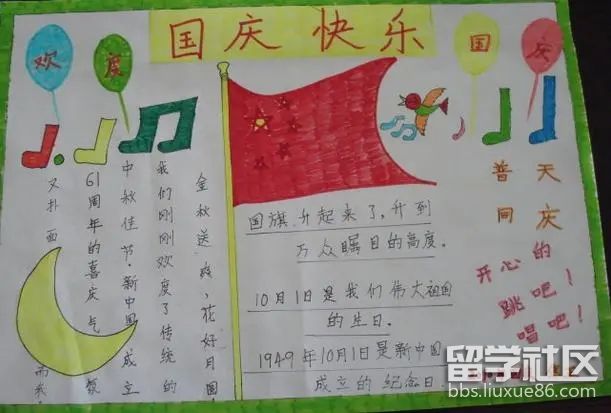 国庆快乐
欢度
国庆
金秋送爽，花好月圆，
我们刚刚欢度了传统的
中秋佳节，新中国成立
61周年的喜庆气氛
又扑面而来
国旗升起来了，升到
万众瞩目的高度。
10月1日是我们伟大祖国
的生日。
1949年10月1日是新中国
成立的纪念日
普天
同庆
开心的
跳吧！
唱吧！
留学社区
bbs.liuxue86.com